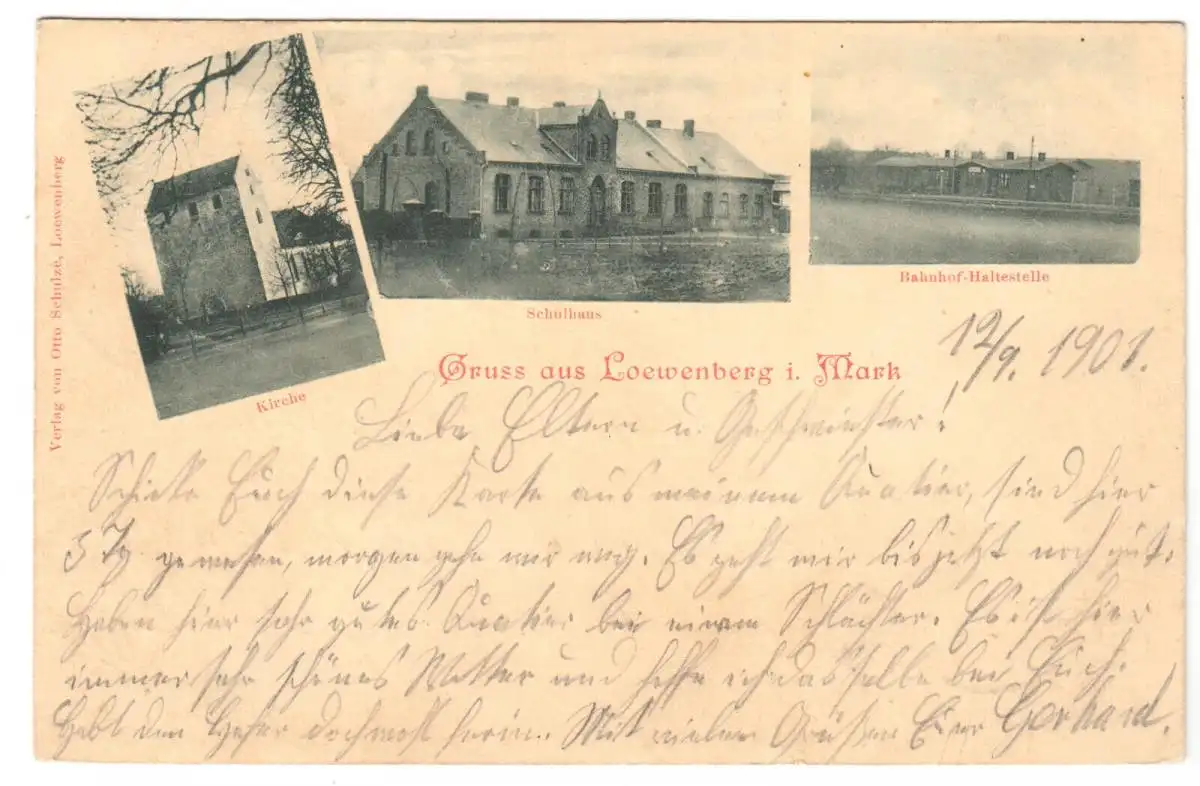 Verlag von Otto Schulze, Loewenberg
Kirche
Schulhaus
Bahnhof-Haltestelle
Gruss aus Loewenberg i. Mark
12/9. 1901.
Liebe Eltern u. Geschwister!
Schicke Euch diese Karte aus meinem Quatier, sind hier
3 Tg gewesen, morgen gehn wir weg. Es geht mir bis jetzt noch gut.
Haben hier sehr gutes Quatier bei einem Schlächter. Es ist hier
immer sehr schönes Wetter und hoffe ich dasselbe bei Euch.
Habt den Hafer doch wohl herin. Mit vielen Grüßen Euer Gerhard.